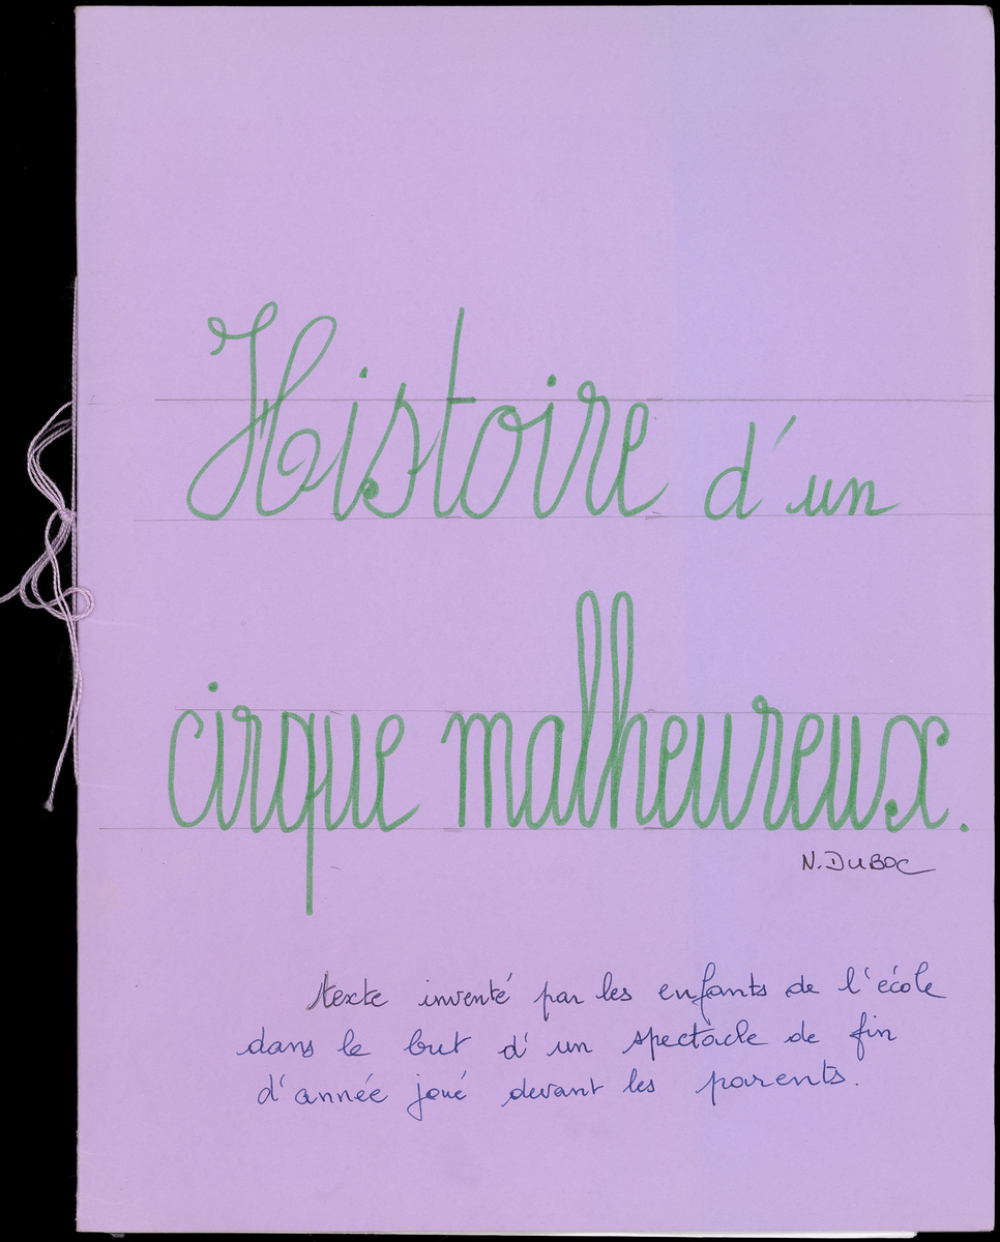 Histoire d'un
cirque malheureux.
N. DUBOC
texte inventé par les enfants de l'école
dans le but d'un spectacle de fin
d'année joué devant les parents.